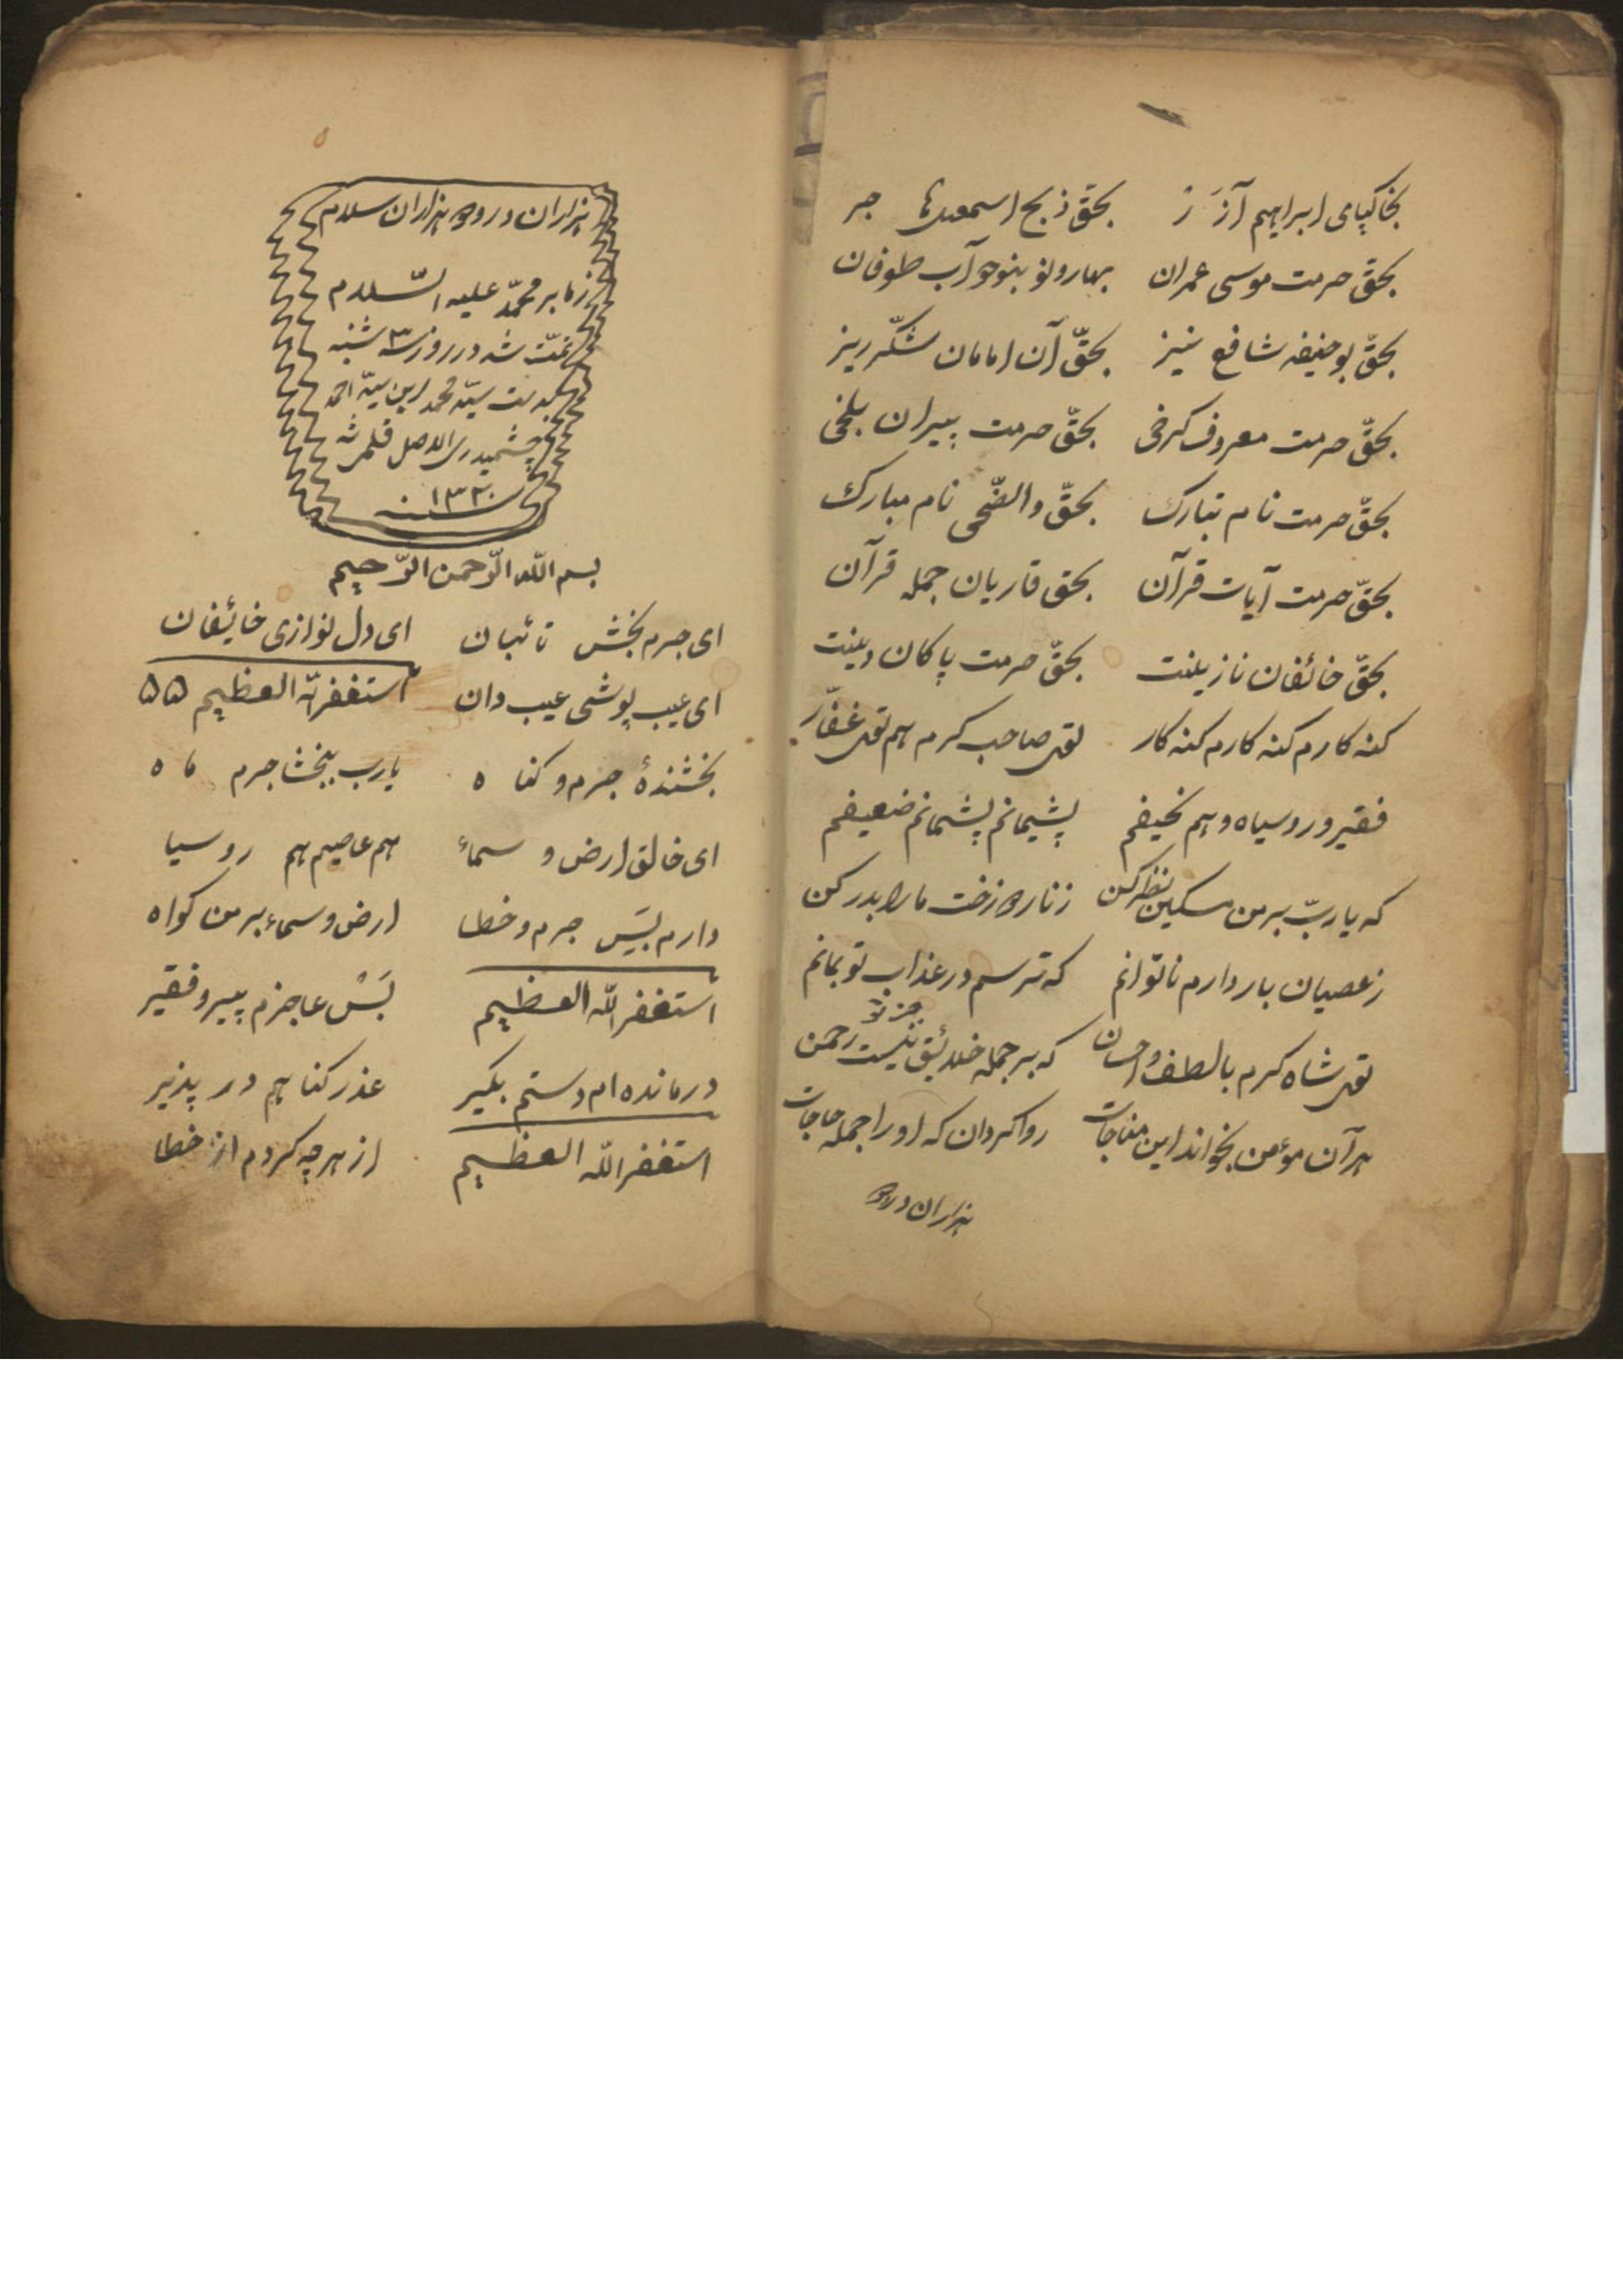 بخاکپای ابراهیم آزر بحقّ ذبح اسمعیل
بحقّ حرمت موسی عمران بهارون و بنوح و آب طوفان
بحقّ بوحنیفه شافع نیز بحقّ آن امامان شکّرریز
بحقّ حرمت معروف کرخی بحقّ حرمت پیران بلخی
بحقّ حرمت نام تبارک بحقّ والضّحی نام مبارک
بحقّ حرمت آیات قرآن بحق قاریان جمله قرآن
بحقّ خائفان نازینت بحقّ حرمت پاکان دینت
کنه کارم کنه کارم کنه کار توی صاحب کرم هم توی غفّار
فقیر و روسیاه و هم نحیفم پشیمانم پشیمانم ضعیفم
که یاربّ بر من مسکین نظر کن ز ناره زخت مارا بدر کن
ز عصیان بار دارم ناتوانم که ترسم در عذاب تو بمانم
جز تو
توی شاه کرم بالطف و احسان که بر جمله خلائق نیست رحمن
هر آن مؤمن بخواند این مناجات روا کردان که او را جمله حاجات
هزاران درود
هزاران درود هزاران سلام
زما بر محمّد علیه السّلام
تمّت شد در روز سه ۳ شنبه
بدست سیّد محمد ابن سیّد احمد
الاصل قلمی شد
سنه ۱۳۲۰
بسم اللّه الرّحمن الرّحیم
ای جرم بخش تائبان ای دل نوازی خائفان
ای عیب پوشی عیب دان استغفر اللّه العظیم ۵۵
بخشندهٔ جرم و کناه یارب ببخشا جرم ماه
ای خالق ارض و سماء هم عاصیم هم روسیا
دارم بسَی جرم و خطا ارض و سماء بر من کواه
استغفر اللّه العظیم بسْ عاجزم پیر و فقیر
درمانده ام دستم بکیر عذر کناهم در پذیر
استغفر اللّه العظیم از هرچه کردم از خطا